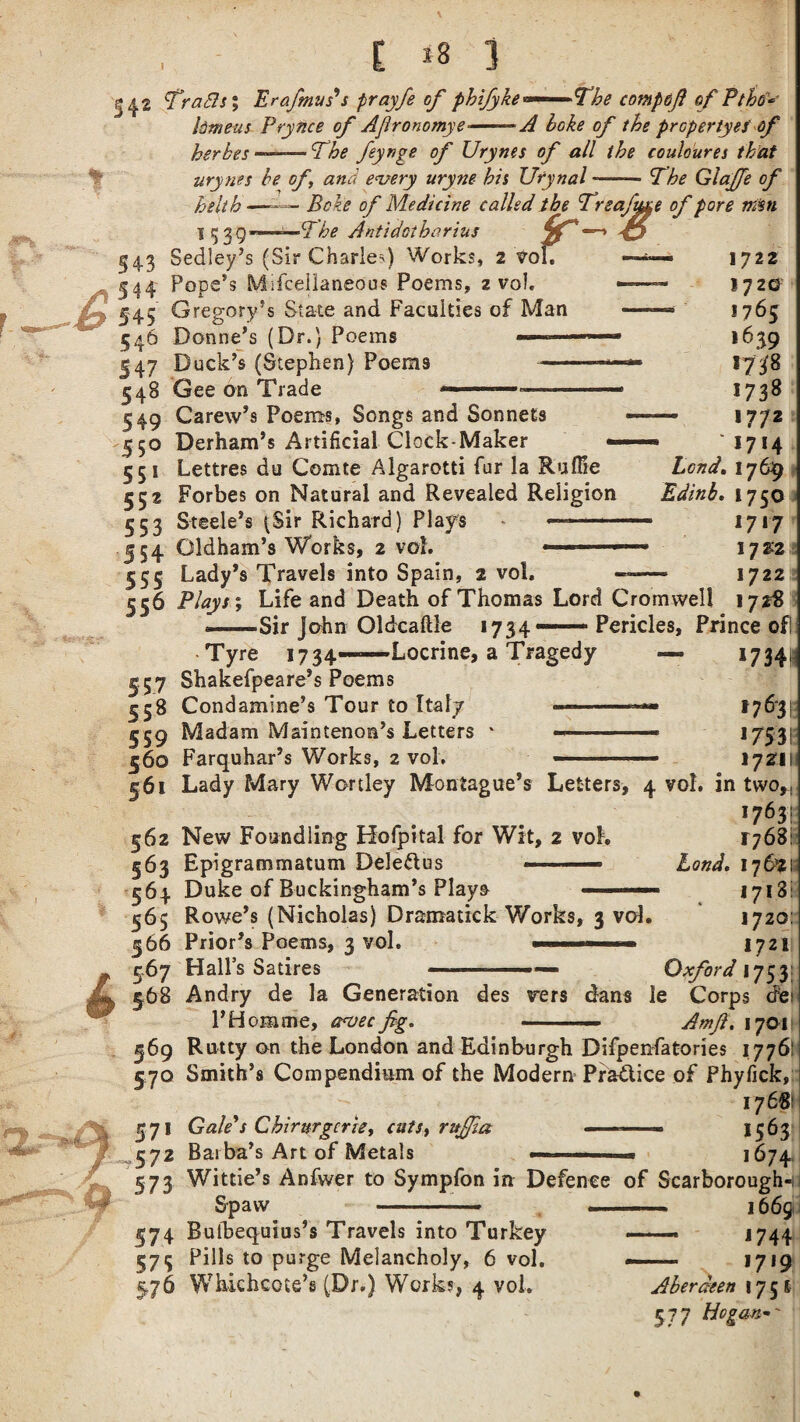 [ 18 ]
542 Tracts; Eraſmus's prayſe of phiſyke——The compoſt of Ptho-
lomeus Prynce of Aſtronomye——A boke of the propertyes of
herbes——The ſeynge of Urynes of all the couloures that
urynes be of, and every uryne his Urynal——The Glaſſe of
helth——Boke of Medicine called the Treaſure of pore men
1539——The Antidotharius
543 Sedley's (Sir Charles) Works, 2 vol. —— 1722
544 Pope's Miſcellaneous Poems, 2 vol. —— 1720
545 Gregory's State and Faculties of Man —— 1765
546 Donne's (Dr.) Poems —— 1639
547 Duck's (Stephen) Poems —— 1738
548 Gee on Trade —— 1738
549 Carew's Poems, Songs and Sonnets —— 1772
550 Derham's Artificial Clock-Maker —— 1714
551 Lettres du Comte Algarotti ſur la Ruſſie Lond. 1769
552 Forbes on Natural and Revealed Religion Edinb. 1750
553 Steele's (Sir Richard) Plays —— 1717
554 Oldham's Works, 2 vol. —— 1722
555 Lady's Travels into Spain, 2 vol. —— 1722
556 Plays; Life and Death of Thomas Lord Cromwell 1728
——Sir John Oldcaſtle 1734——Pericles, Prince of
Tyre 1734——Locrine, a Tragedy — 1734
557 Shakeſpeare's Poems
558 Condamine's Tour to Italy —— 1763
559 Madam Maintenon's Letters —— 1753
560 Farquhar's Works, 2 vol. —— 1721
561 Lady Mary Wortley Montague's Letters, 4 vol. in two,
1763
562 New Foundling Hoſpital for Wit, 2 vol. 1768
563 Epigrammatum Delectus —— Lond. 1762
564 Duke of Buckingham's Plays —— 1713
565 Rowe's (Nicholas) Dramatick Works, 3 vol. 1720
566 Prior's Poems, 3 vol. —— 1721
567 Hall's Satires —— Oxford 1753
568 Andry de la Generation des vers dans le Corps de
l'Homme, avec fig. —— Amſt. 1701
569 Rutty on the London and Edinburgh Diſpenſatories 1776
570 Smith's Compendium of the Modern Practice of Phyſick,
1768
571 Gale's Chirurgerie, cuts, ruſſia —— 1563
572 Barba's Art of Metals —— 1674
573 Wittie's Anſwer to Sympſon in Defence of Scarborough-
Spaw —— —— 1669
574 Buſbequius's Travels into Turkey —— 1744
575 Pills to purge Melancholy, 6 vol. —— 1719
576 Whichcote's (Dr.) Works, 4 vol. Aberdeen 1751
577 Hogan-